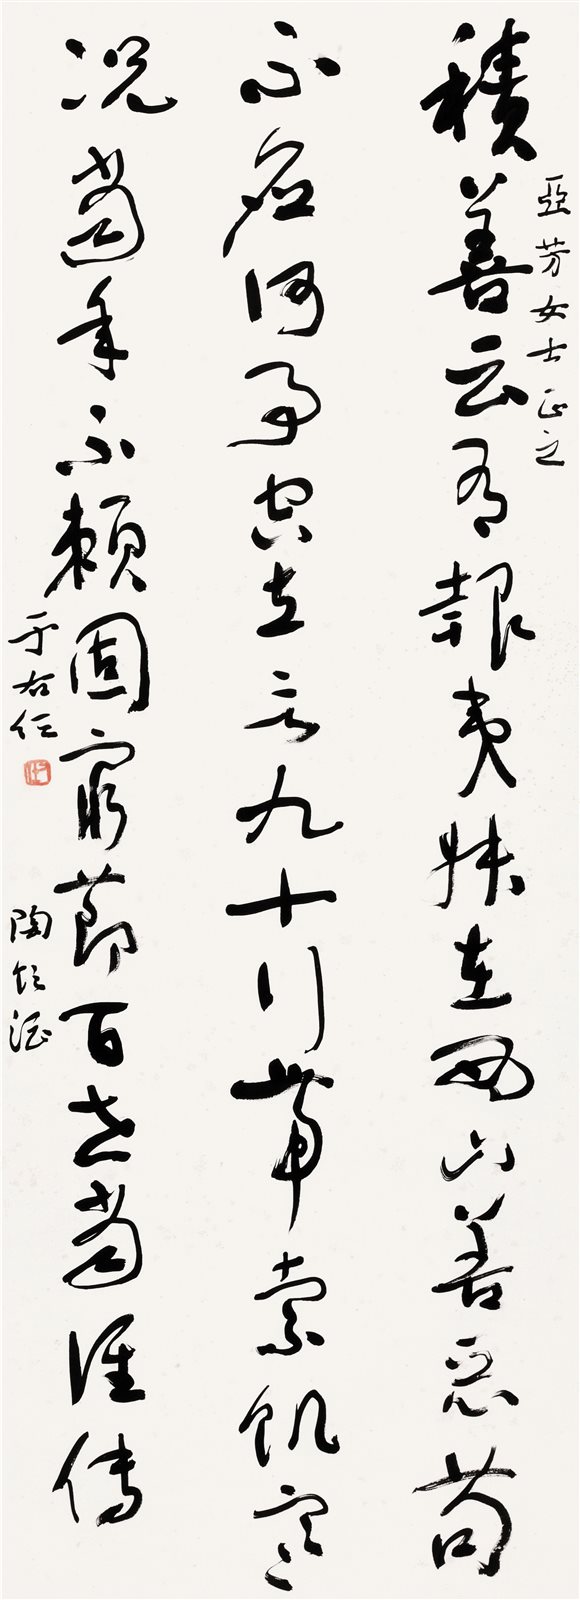 亞芳女士正之
積善云有報夷叔在西山善惡苟
不應何事空立言九十行帶索飢寒
況當年不賴固窮節百世當誰傳
于右任
陶飲酒